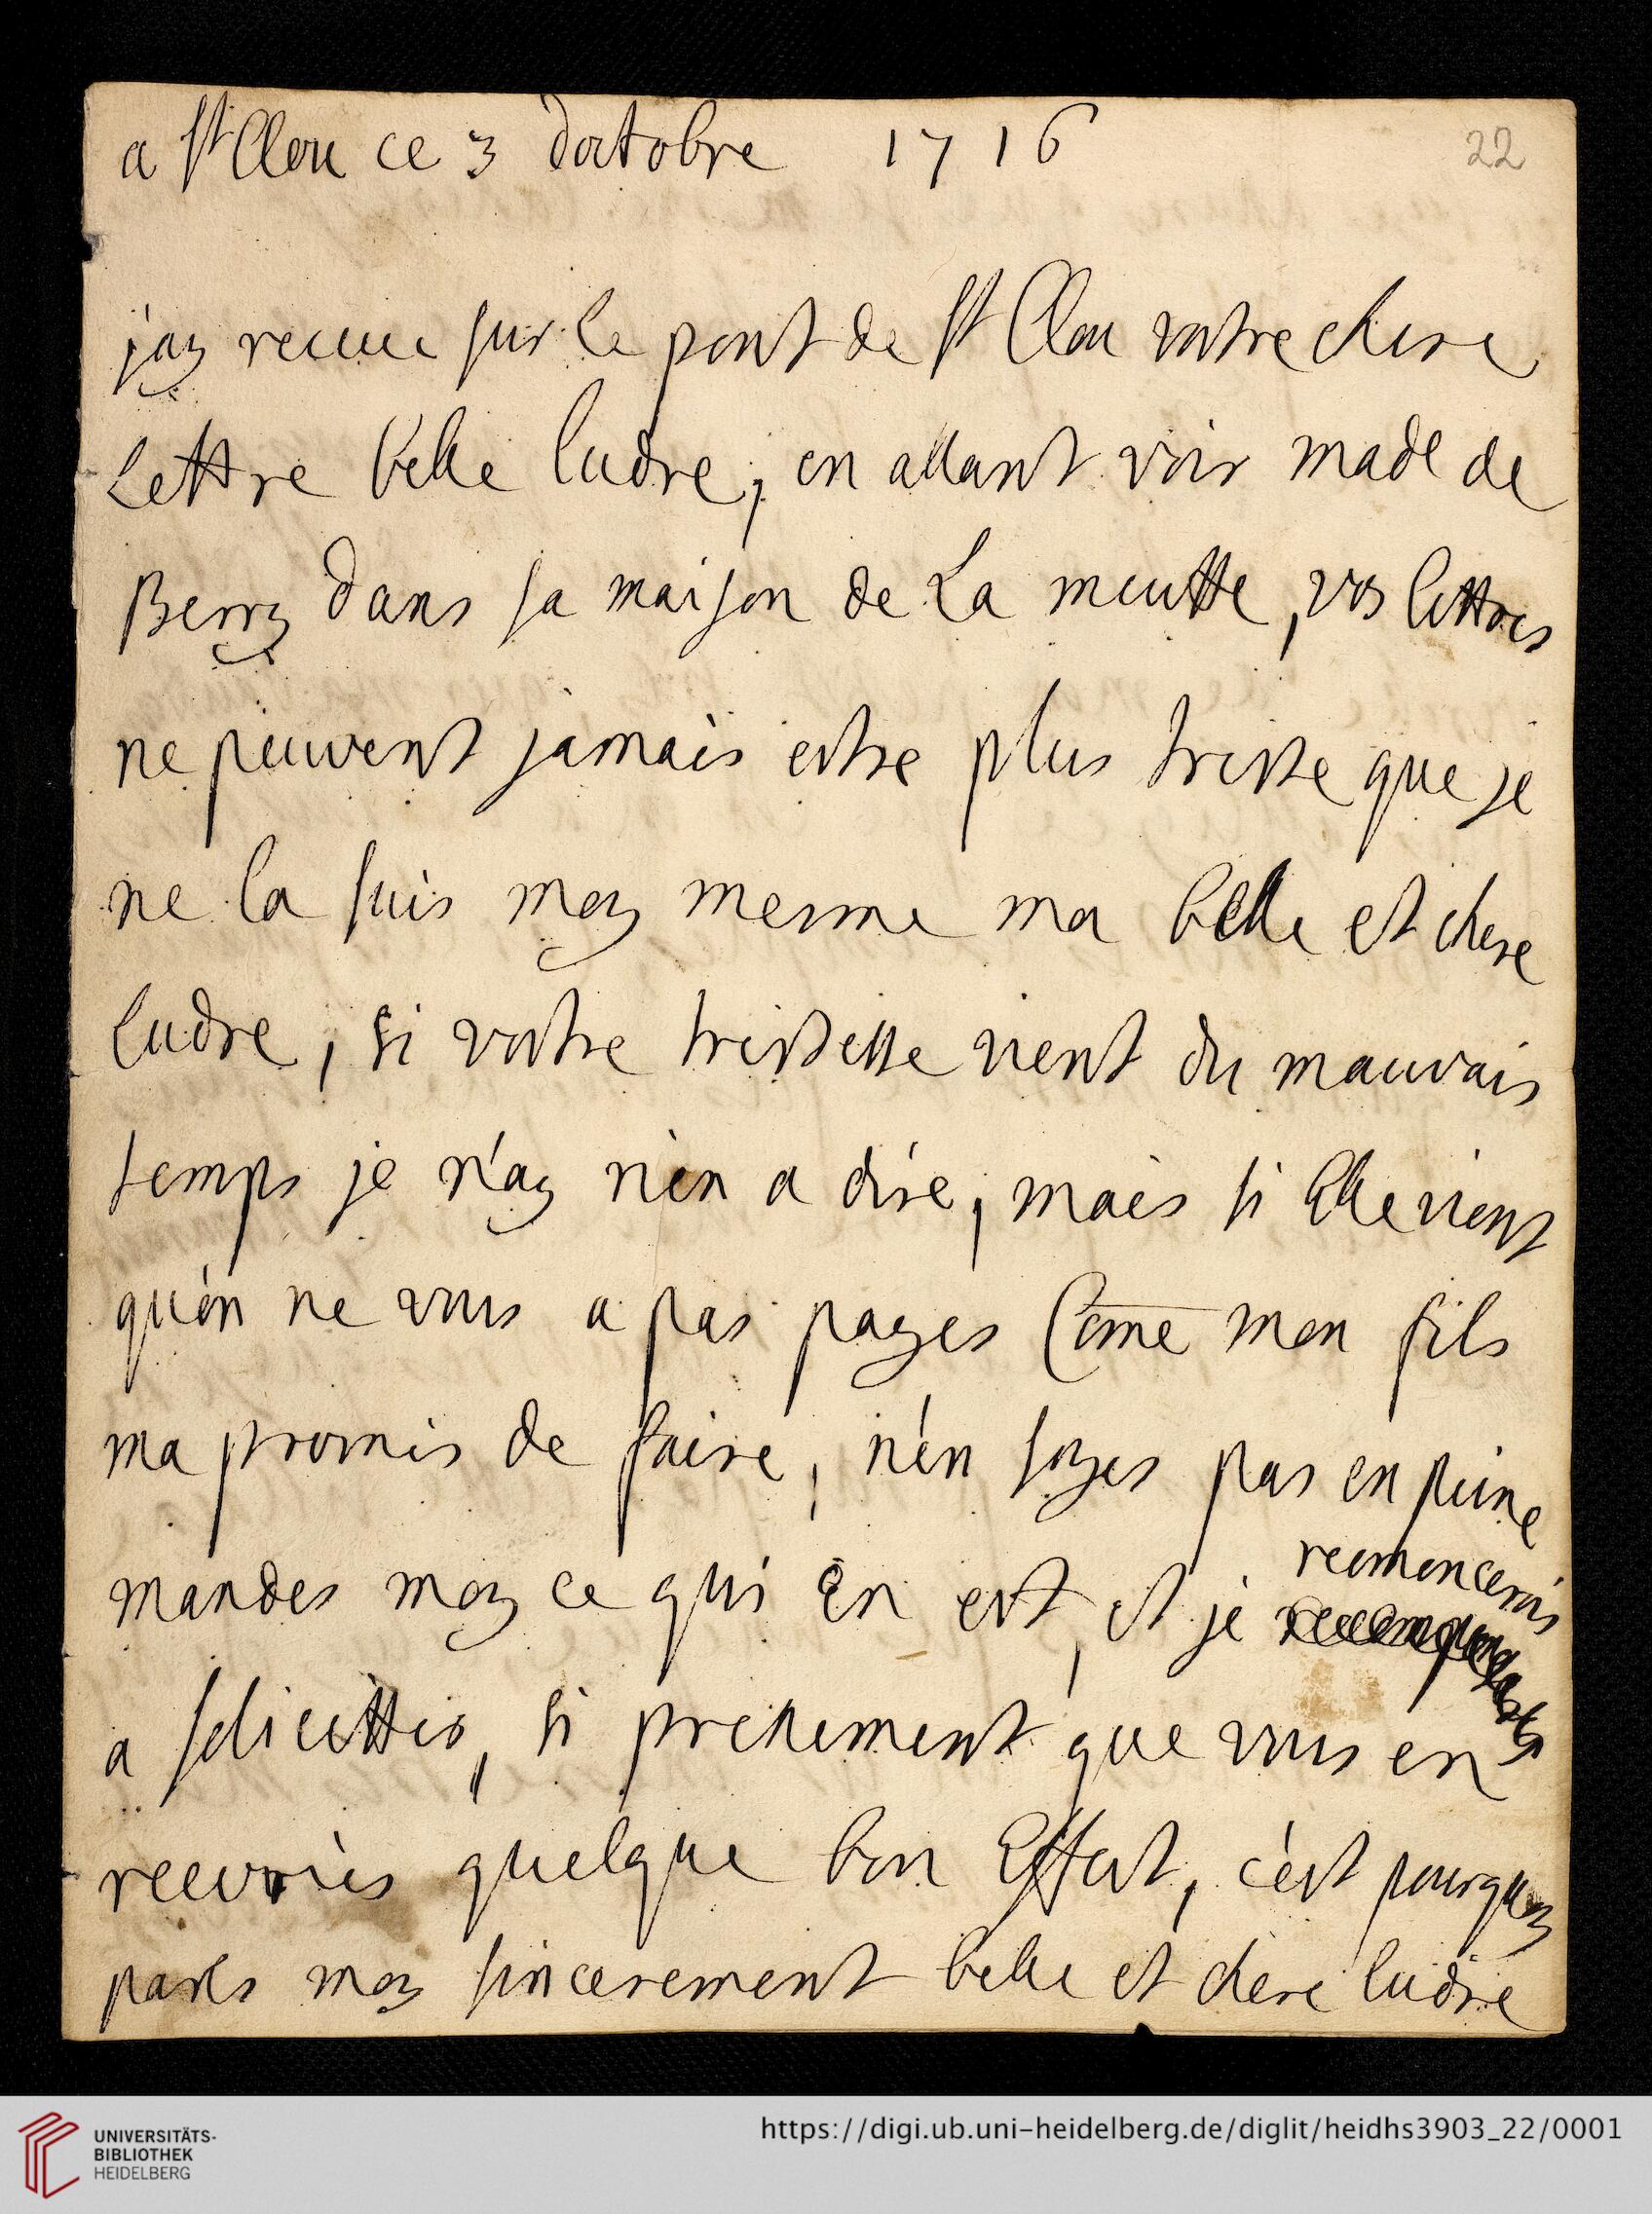 a St Clou ce 3 doctobre 1716
22
j'ay receue sur le pont de St Clou vostre chere
Lettre belle ludre, en allant voir made de
Berry dans sa maison de La meutte, vos lettres
ne peuvent jamais estre plus triste que je
ne la suis moy mesme ma belle et chere
ludre, si vostre tristesse vient du mauvais
temps je n'ay rien a dire, mais si Elle vient
qu'on ne vous a pas payes Come mon fils
ma promis de faire, n'en soyes pas en peine
mandes moy ce qui En est, et je recomencerois
a solicitter, si pressement que vous en
recevries quelque bon Effect, c'est pourquoy
parles moy sincerement belle et chere ludre
UNIVERSITÄTS-
BIBLIOTHEK
HEIDELBERG
https://digi.ub.uni-heidelberg.de/diglit/heidhs3903_22/0001